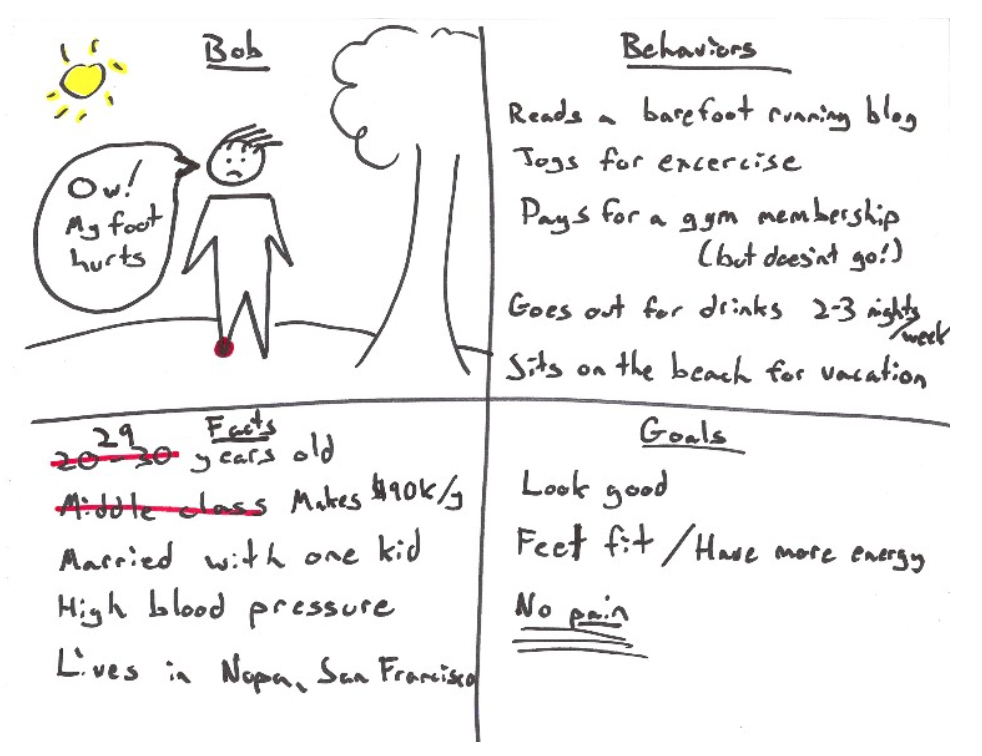 Bob
Ow!
My foot
hurts
Behaviors
Reads a barefoot running blog
Jogs for excercise
Pays for a gym membership
(but doesn't go!)
Goes out for drinks 2-3 nights
/week
Sits on the beach for vacation
Facts
29
20-30 years old
Middle class Makes $90k/y
Married with one kid
High blood pressure
Lives in Nopa, San Francisco
Goals
Look good
Feel fit / Have more energy
No pain